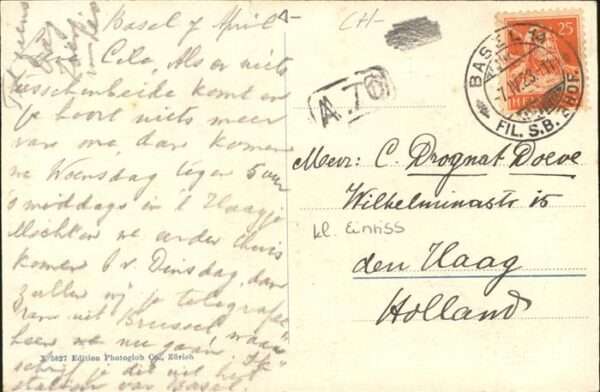 Basel 7 April
Lieve Cela, Als er niets
tusschenbeide komt en
je hoort niets meer
van ons, dan komen
we Woensdag tegen 5 uur
's middags in 't Haagje
Mochten we eerder thuis
komen b.v. Dinsdag, dan
zullen wij je telegrafe
ren uit Brussel waar
heen we nu gaan. Ik
schrijf je dit uit het
station van Basel.
X 5827 Edition Photoglob Co., Zürich
CH-
A.70
BASEL 13
7.IV.23.-11
FIL. S.B. BHOF.
25
Mevr: C. Drognat Doeve
Wilhelminastr 15
kl. Einriss
den Haag
Holland